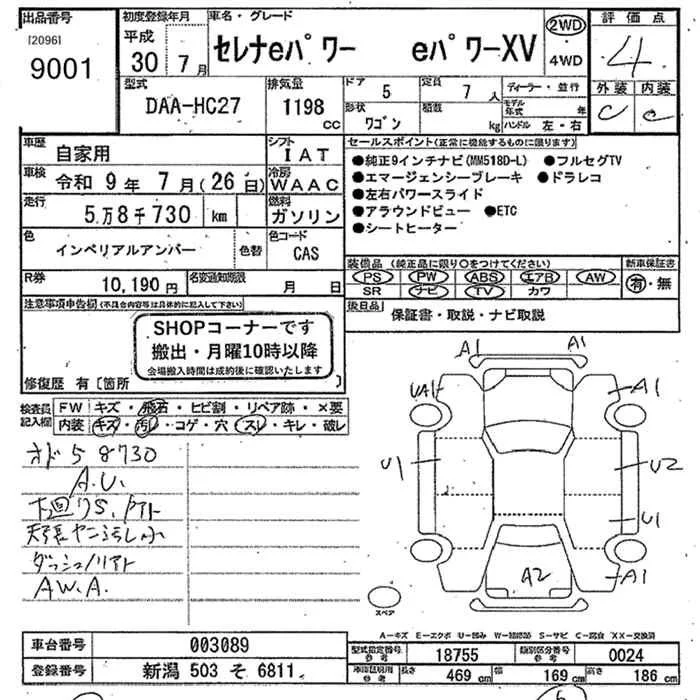 出品番号
[2096]
9001
初度登録年月
平成
30年 7月
車名・グレード
セレナeパワー eパワーXV
2WD
・
4WD
評価点
4
外装 内装
C C
型式
DAA-HC27
排気量
1198
cc
ドア
5
形状
ワゴン
定員
7人
積載
kg
ディーラー・並行
モデル年式 年
ハンドル 左・右
車歴
自家用
シフト
IAT
車検
令和 9年 7月(26日)
冷房
WAAC
走行
5万8千730 km
燃料
ガソリン
色
インペリアルアンバー
色替
色コード
CAS
R券
10,190円
名変通知期限
月 日
セールスポイント(正常に機能するものに限ります)
●純正9インチナビ(MM518D-L) ●フルセグTV
●エマージェンシーブレーキ ●ドラレコ
●左右パワースライド
●アラウンドビュー ●ETC
●シートヒーター
装備品 (純正品に限り○をつけてください)
PS PW ABS エアB AW
SR ナビ TV カワ
新車保証書
有・無
後日品
保証書・取説・ナビ取説
注意事項申告欄(不具合内容等は具体的に記入して下さい)
SHOPコーナーです
搬出・月曜10時以降
会場搬入時間は成約後に確認いたします
修復歴 有〔箇所 〕
検査員
記入欄
FW キズ・飛石・ヒビ割・リペア跡・×要
内装 キズ・汚レ・コゲ・穴・スレ・キレ・破レ
オド58730
A.U.
下廻りS.
天張ヤニ汚し小
A.W.A.
A1 A1
UA1 A1
U1 U2
U1
A2 A1
スペア
A-キズ E-エクボ U-凹み W-補修跡 S-サビ C-腐食 XX-交換済
車台番号
003089
登録番号
新潟 503 そ 6811
型式指定番号
参考
18755
類別区分番号
参考
0024
参考
長さ
469 cm
幅
169 cm
高さ
186 cm